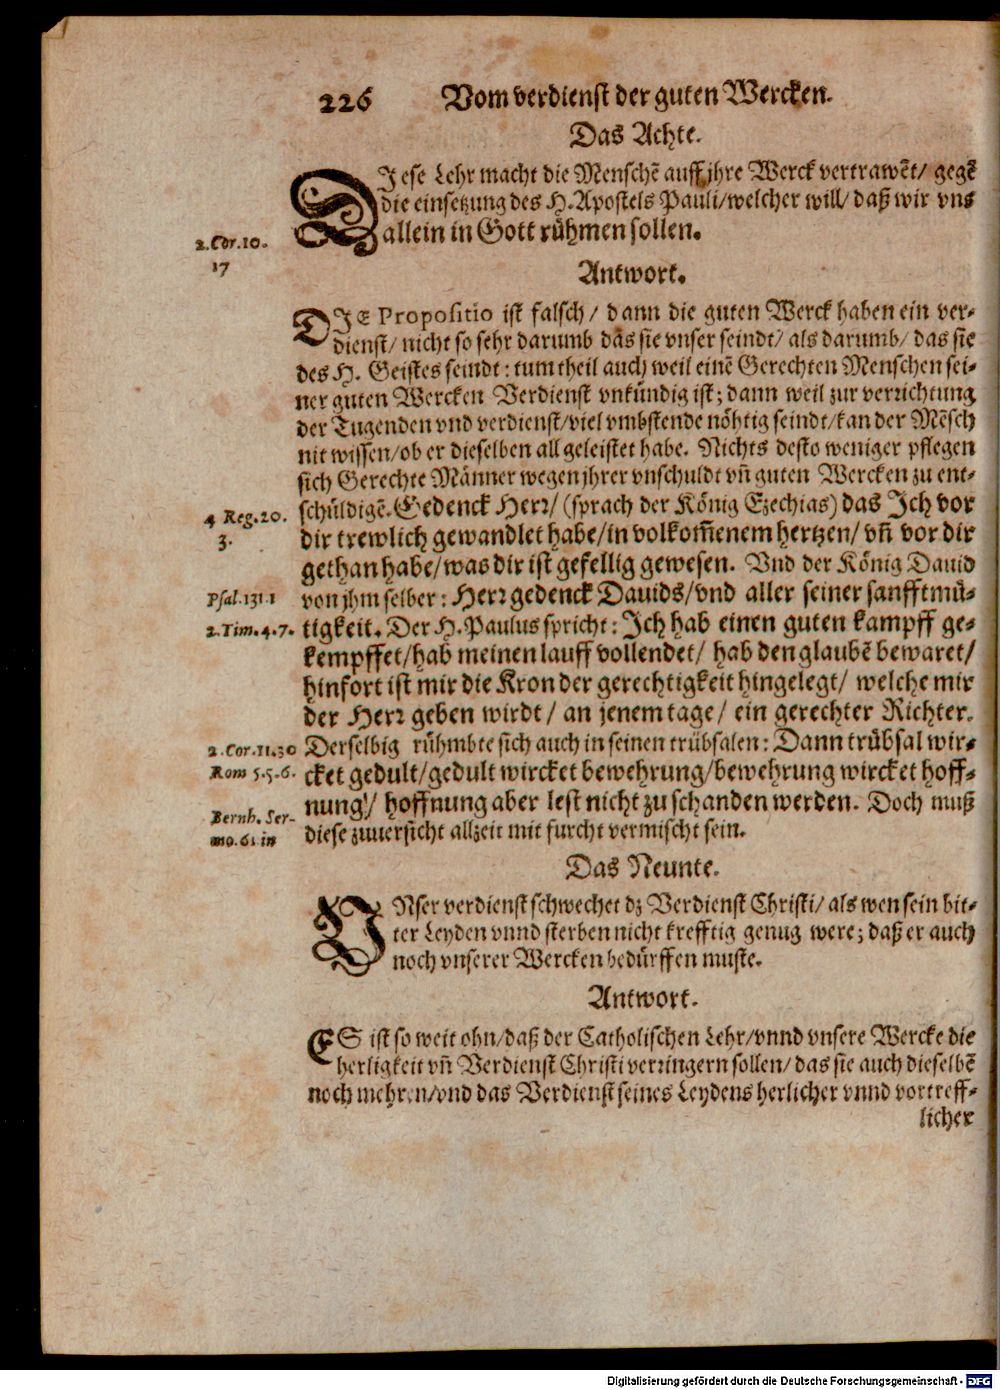 226 Vom verdienst der guten Wercken.
Das Achte.
DIese Lehr macht die Menschẽ auff jhre Werck vertrawẽt/ gegẽ
die einsetzung des H. Apostels Pauli/welcher will/ daß wir vns
allein in Gott rühmen sollen.
2. Cor. 10.
17
Antwort.
DIE Propositio ist falsch / dann die guten Werck haben ein ver-
dienst/ nicht so sehr darumb das sie vnser seindt/ als darumb/ das sie
des H. Geistes seindt: tum theil auch weil einẽ Gerechten Menschen sei-
ner guten Wercken Verdienst vnkündig ist; dann weil zur verrichtung
der Tugenden vnd verdienst/viel vmbstende nöhtig seindt/kan der Mẽsch
nit wissen/ob er dieselben all geleistet habe. Nichts desto weniger pflegen
sich Gerechte Männer wegen jhrer vnschuldt vñ guten Wercken zu ent-
schüldigẽ. Gedenck Herr/ (sprach der König Ezechias) das Ich vor
4 Reg. 20.
3.
dir trewlich gewandlet habe/in volkom̃enem hertzen/ vñ vor dir
gethan habe/was dir ist gefellig gewesen. Vnd der König Dauid
von jhm selber: Herr gedenck Dauids/vnd aller seiner sanfftmü-
Psal. 131. 1
tigkeit. Der H. Paulus spricht: Ich hab einen guten kampff ge-
2. Tim. 4. 7.
kempffet/hab meinen lauff vollendet/ hab den glaubẽ bewaret/
hinfort ist mir die Kron der gerechtigkeit hingelegt/ welche mir
der Herr geben wirdt / an jenem tage / ein gerechter Richter.
Derselbig rühmbte sich auch in seinen trübsalen: Dann trübsal wir-
2. Cor. 11. 30
cket gedult/gedult wircket bewehrung/bewehrung wircket hoff-
Rom 5. 5. 6.
nung/ hoffnung aber lest nicht zu schanden werden. Doch muß
diese zuuersicht allzeit mit furcht vermischt sein.
Bernh. Ser-
mo. 61 in
Das Neunte.
VNser verdienst schwechet dz Verdienst Christi/ als wen sein bit-
ter Leyden vnnd sterben nicht krefftig genug were; daß er auch
noch vnserer Wercken bedürffen muste.
Antwort.
ES ist so weit ohn/daß der Catholischen Lehr/vnnd vnsere Wercke die
herligkeit vñ Verdienst Christi verringern sollen/ das sie auch dieselbẽ
noch mehren/vnd das Verdienst seines Leydens herlicher vnnd vortreff-
licher
Digitalisierung gefördert durch die Deutsche Forschungsgemeinschaft - DFG